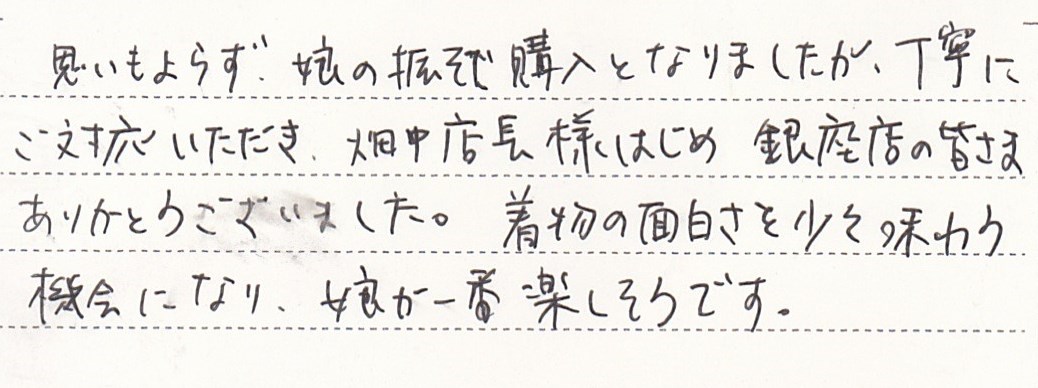 思いもよらず、娘の振袖購入となりましたが、丁寧に
ご対応いただき、畑中店長様はじめ 銀座店の皆さま
ありがとうございました。 着物の面白さを少々味わう
機会になり、娘が一番楽しそうです。